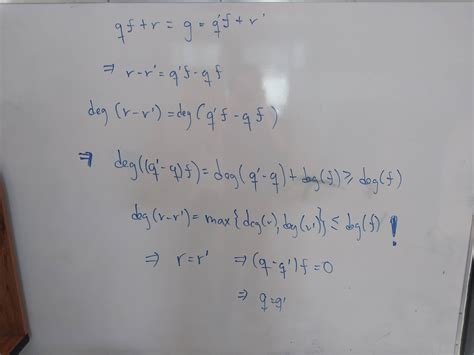 qf + r = g = q'f + r'
⇒ r - r' = q'f - qf
deg(r - r') = deg(q'f - qf)
⇒ deg((q' - q)f) = deg(q' - q) + deg(f) ≥ deg(f)
deg(r - r') = max{deg(r), deg(r')} ≤ deg(f) !
⇒ r = r' ⇒ (q - q')f = 0
⇒ q = q'